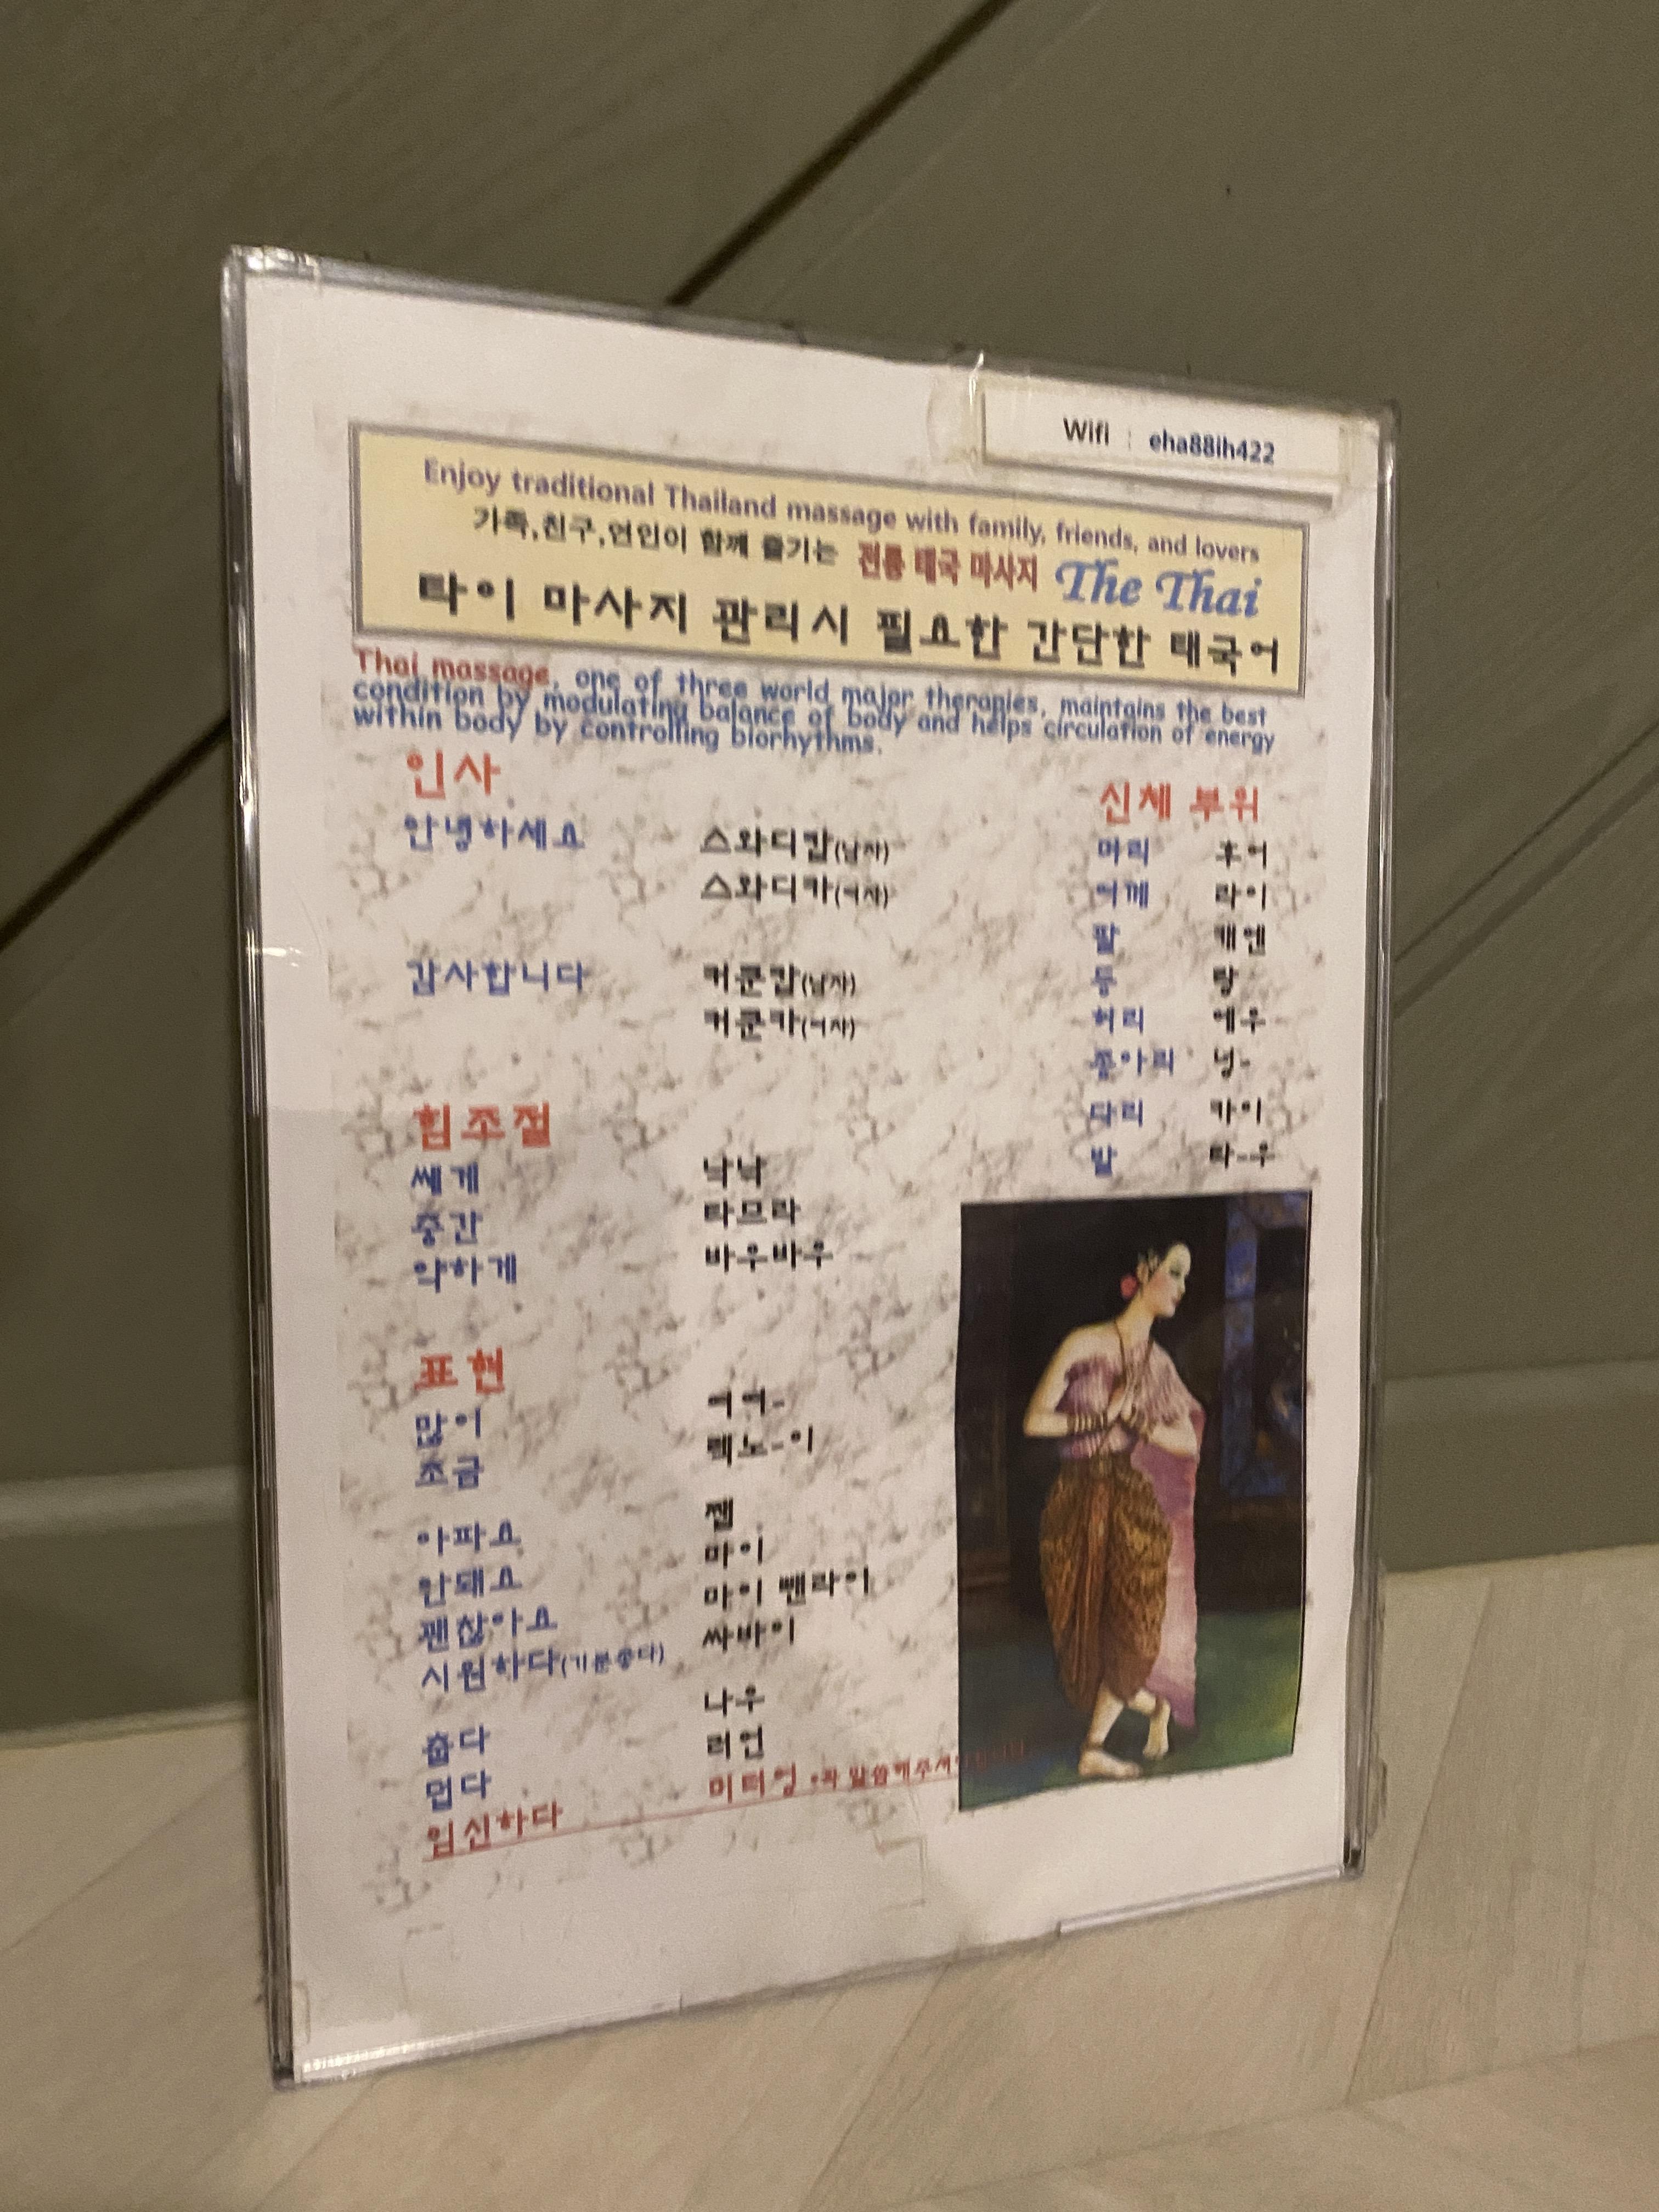 Wifi : eha88ih422
Enjoy traditional Thailand massage with family, friends, and lovers
가족,친구,연인이 함께 즐기는 전통 태국 마사지 The Thai
타이 마사지 관리시 필요한 간단한 태국어
Thai massage, one of three world major therapies, maintains the best
condition by modulating balance of body and helps circulation of energy
within body by controlling biorhythms.
인사
안녕하세요 스와디캅(남자)
스와디카(여자)
감사합니다 커쿤캅(남자)
커쿤카(여자)
힘조절
쎄게 낙낙
중간 타므라
약하게 바우바우
표현
많이 여여-
조금 렉노-이
아파요 쩹
안돼요 마이
괜찮아요 마이 뺀라이
시원하다(기분좋다) 싸바이
춥다 나우
덥다 러언
임신하다 미터엉 *꼭 말씀해주셔
신체 부위
머리 후어
어깨 라이
팔 캐엔
등 랑
허리 에우
종아리 넝-
다리 카이
발 타-우